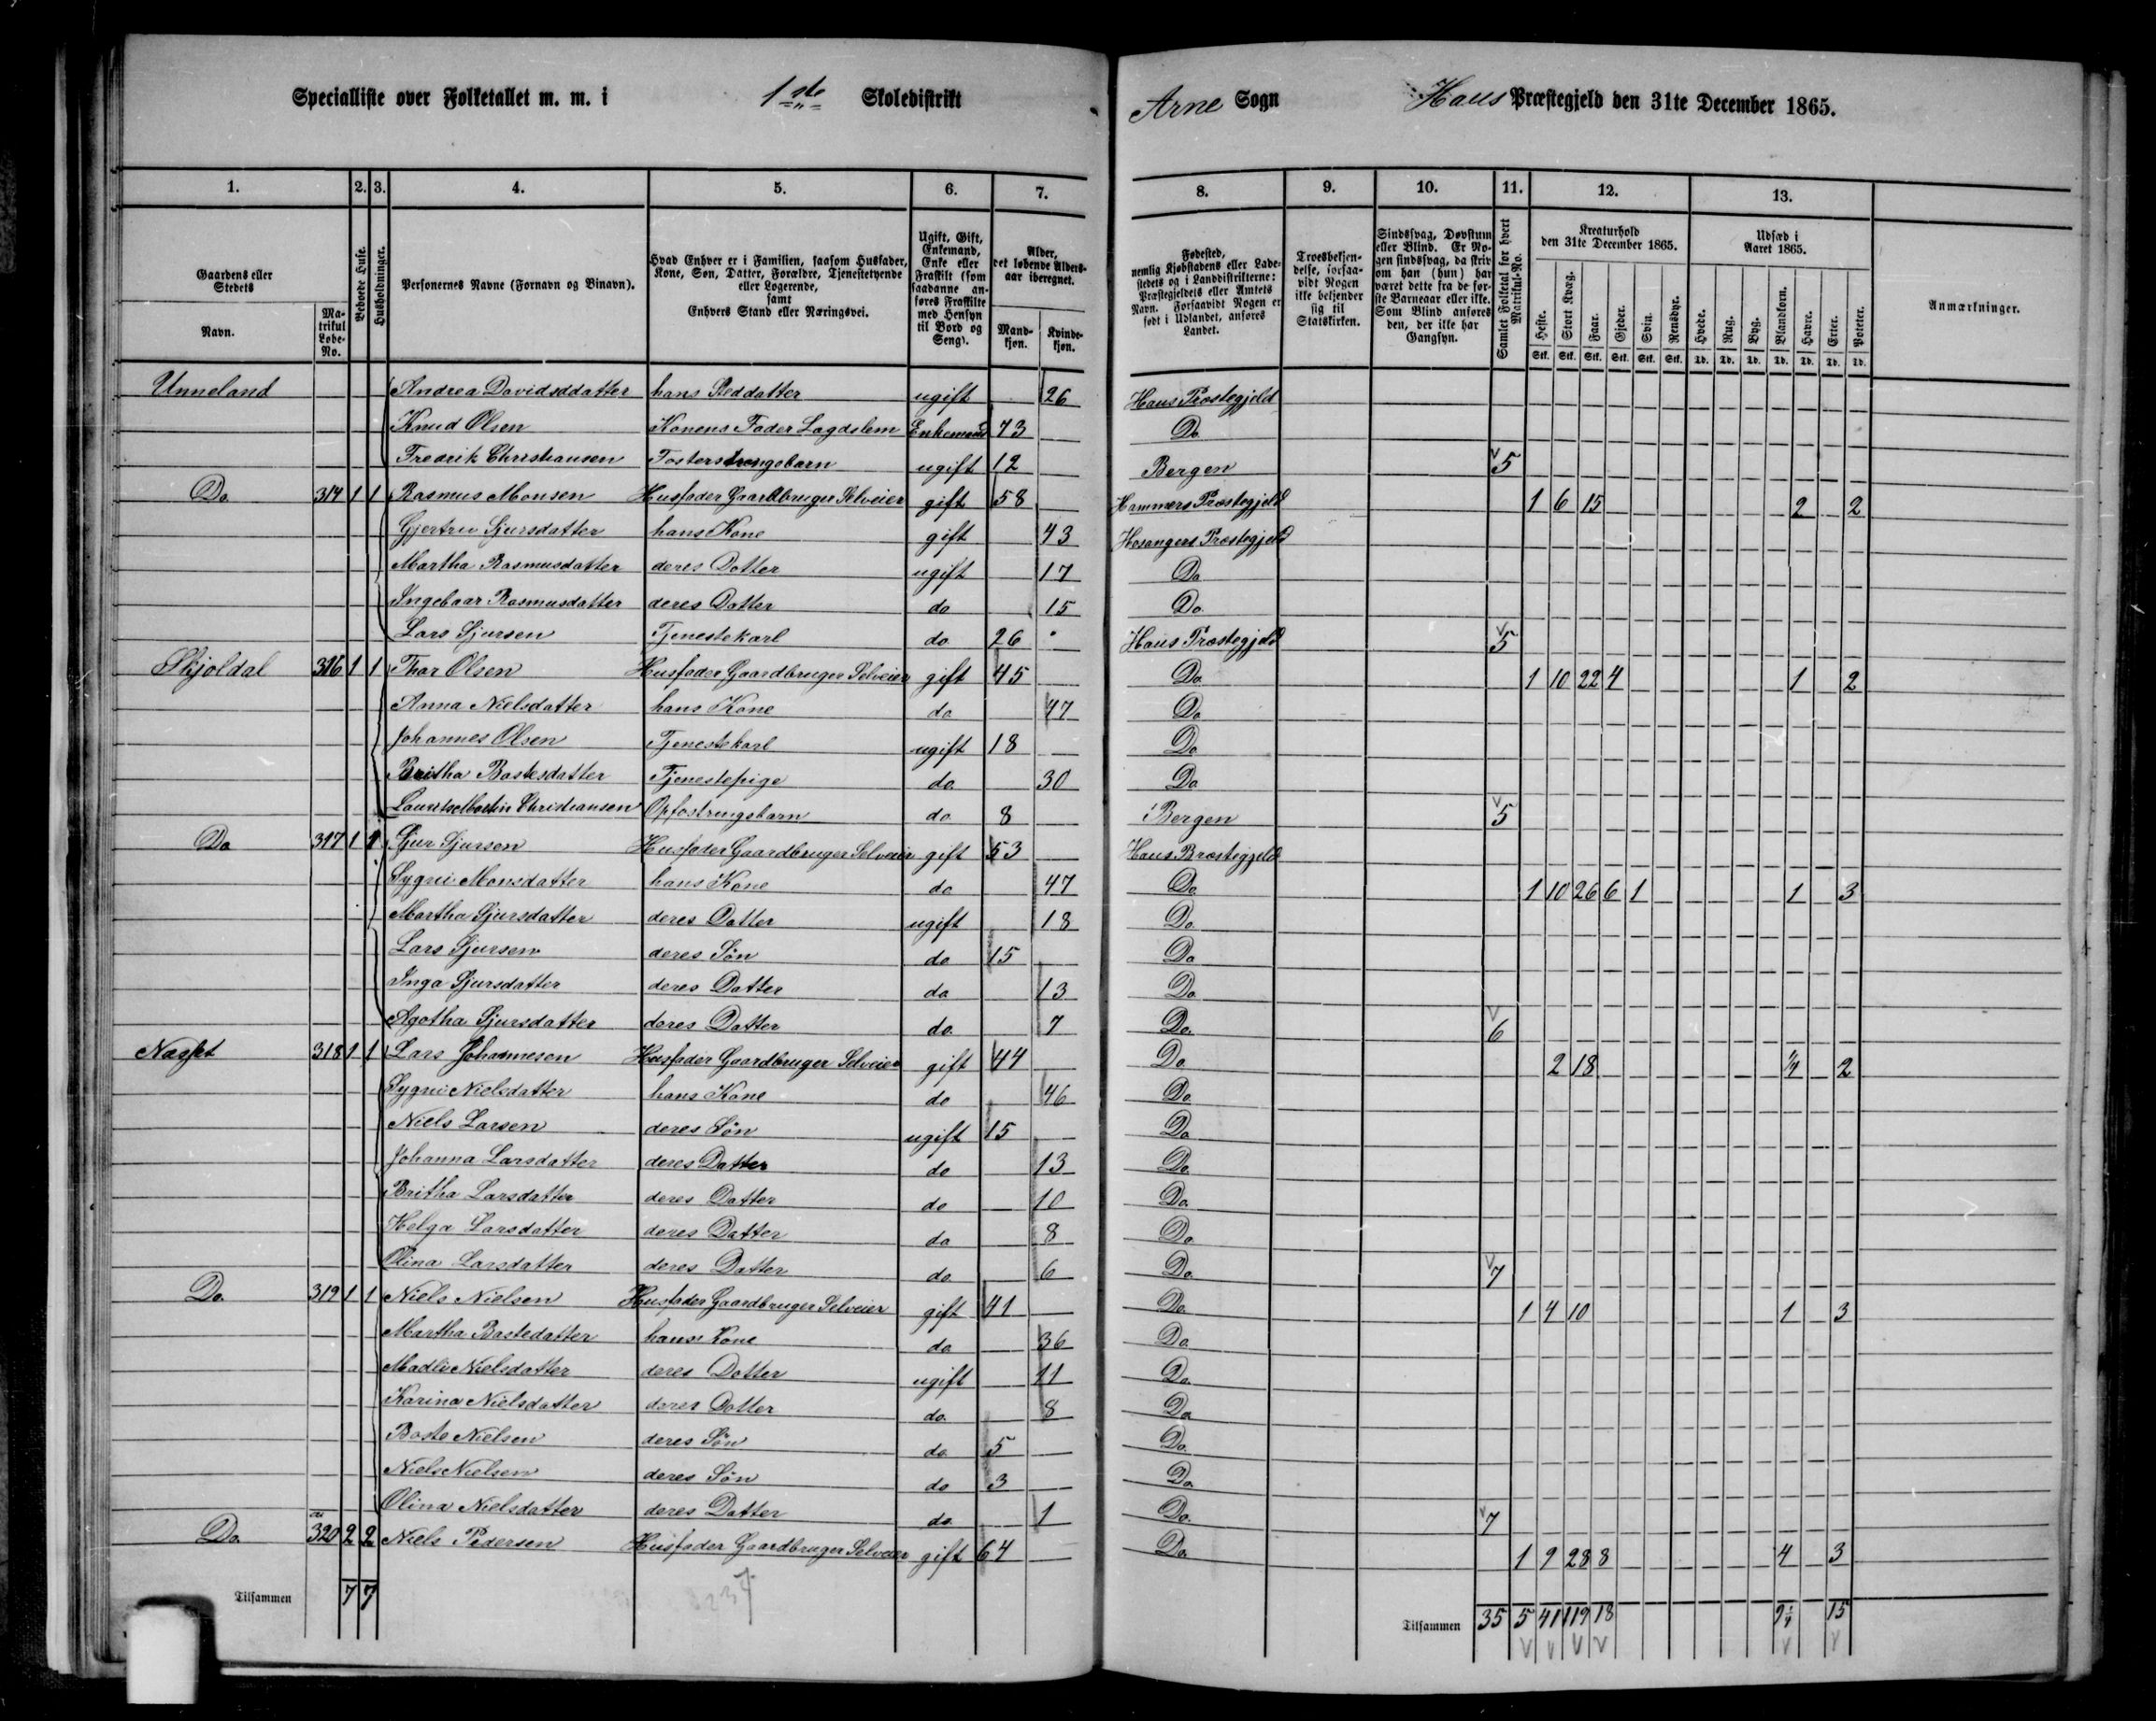 Specialliste over Folketallet m. m. i 1ste Skoledistrikt Arne Sogn Haus Præstegjeld den 31te December 1865.
1. 2. 3. 4. 5. 6. 7. 8. 9. 10. 11. 12. 13.
Gaardens eller Stedets
Navn.
Matrikul Løbe-No.
Beboede Huse.
Husholdninger.
Personernes Navne (Fornavn og Binavn).
Hvad Enhver er i Familien, saasom Husfader, Kone, Søn, Datter, Forældre, Tjenestetyende eller Logerende, samt Enhvers Stand eller Næringsvei.
Ugift, Gift, Enkemand, Enke eller Fraskilt (som saadanne anføres Fraskilte med Hensyn til Bord og Seng).
Alder, det løbende Alders-aar iberegnet.
Mand-kjøn. Kvinde-kjøn.
Fødested, nemlig Kjøbstadens eller Ladestedets og i Landdistrikterne: Præstegjeldets eller Amtets Navn. Forsaavidt Nogen er født i Udlandet, anføres Landet.
Troesbekjendelse, forsaavidt Nogen ikke bekjender sig til Statskirken.
Sindssvag, Døvstum eller Blind. Er Nogen sindssvag, da skriv om han (hun) har været dette fra de første Barneaar eller ikke. Som Blind anføres den, der ikke har Gangsyn.
Samlet Folketal for hvert Matrikul-No.
Kreaturhold den 31te December 1865.
Heste. Stort Kvæg. Faar. Gjeder. Svin. Rensdyr.
Stk. Stk. Stk. Stk. Stk. Stk.
Udsæd i Aaret 1865.
Hvede. Rug. Byg. Blandkorn. Havre. Erter. Poteter.
Td. Td. Td. Td. Td. Td. Td.
Anmærkninger.
Unneland Andrea Davidsddatter hans Steddatter ugift 26 Haus Præstegjeld
Knud Olsen Konens Fader Lagdslem Enkemand 73 Do
Fredrik Christiansen ugift 12 Bergen 5
Do 314 1 1 Rasmus Monsen Husfader Gaardbruger Selveier gift 58 Hammers Præstegjeld 1 6 15 2 2
Gjertru Sjursdatter hans Kone gift 43 Hosangers Præstegjeld
Martha Rasmusdatter deres Datter ugift 17 Do
Ingebaar Rasmusdatter deres Datter do 15 Do
Lars Sjursen Tjenestekarl do 26 Haus Præstegjeld 5
Skjoldal 316 1 1 Thor Olsen Husfader Gaardbruger Selveier gift 45 Do 1 10 22 4 1 2
Anna Nielsdatter hans Kone do 47 Do
Johannes Olsen Tjenestekarl ugift 18 Do
Britha Bastesdatter Tjenestepige do 30 Do
Lauritse Martin Christiansen Opfostringsbarn do 8 Bergen 5
Do 317 1 1 Sjur Sjursen Husfader Gaardbruger Selveier gift 53 Haus Præstegjeld
Sygni Monsdatter hans Kone do 47 Do 1 10 26 6 1 1 3
Martha Sjursdatter deres Datter ugift 18 Do
Lars Sjursen deres Søn do 15 Do
Inga Sjursdatter deres Datter do 13 Do
Agotha Sjursdatter deres Datter do 7 Do 6
Næsset 318 1 1 Lars Johannesen Husfader Gaardbruger Selveier gift 44 Do 2 18 1/4 2
Sygni Nielsdatter hans Kone do 46 Do
Niels Larsen deres Søn ugift 15 Do
Johanna Larsdatter deres Datter do 13 Do
Britha Larsdatter deres Datter do 10 Do
Helga Larsdatter deres Datter do 8 Do
Olina Larsdatter deres Datter do 6 Do 7
Do 319 1 1 Niels Nielsen Husfader Gaardbruger Selveier gift 41 Do 1 4 10 1 3
Martha Bastedatter hans Kone do 36 Do
Madli Nielsdatter deres Datter ugift 11 Do
Karina Nielsdatter deres Datter do 8 Do
Baste Nielsen deres Søn do 5 Do
Niels Nielsen deres Søn do 3 Do
Olina Nielsdatter deres Datter do 1 Do 7
Do 320 2 2 Niels Pedersen Husfader Gaardbruger Selveier gift 64 Do 1 9 28 8 4 3
Tilsammen 7 7 Tilsammen 35 5 41 119 18 9 1/4 15